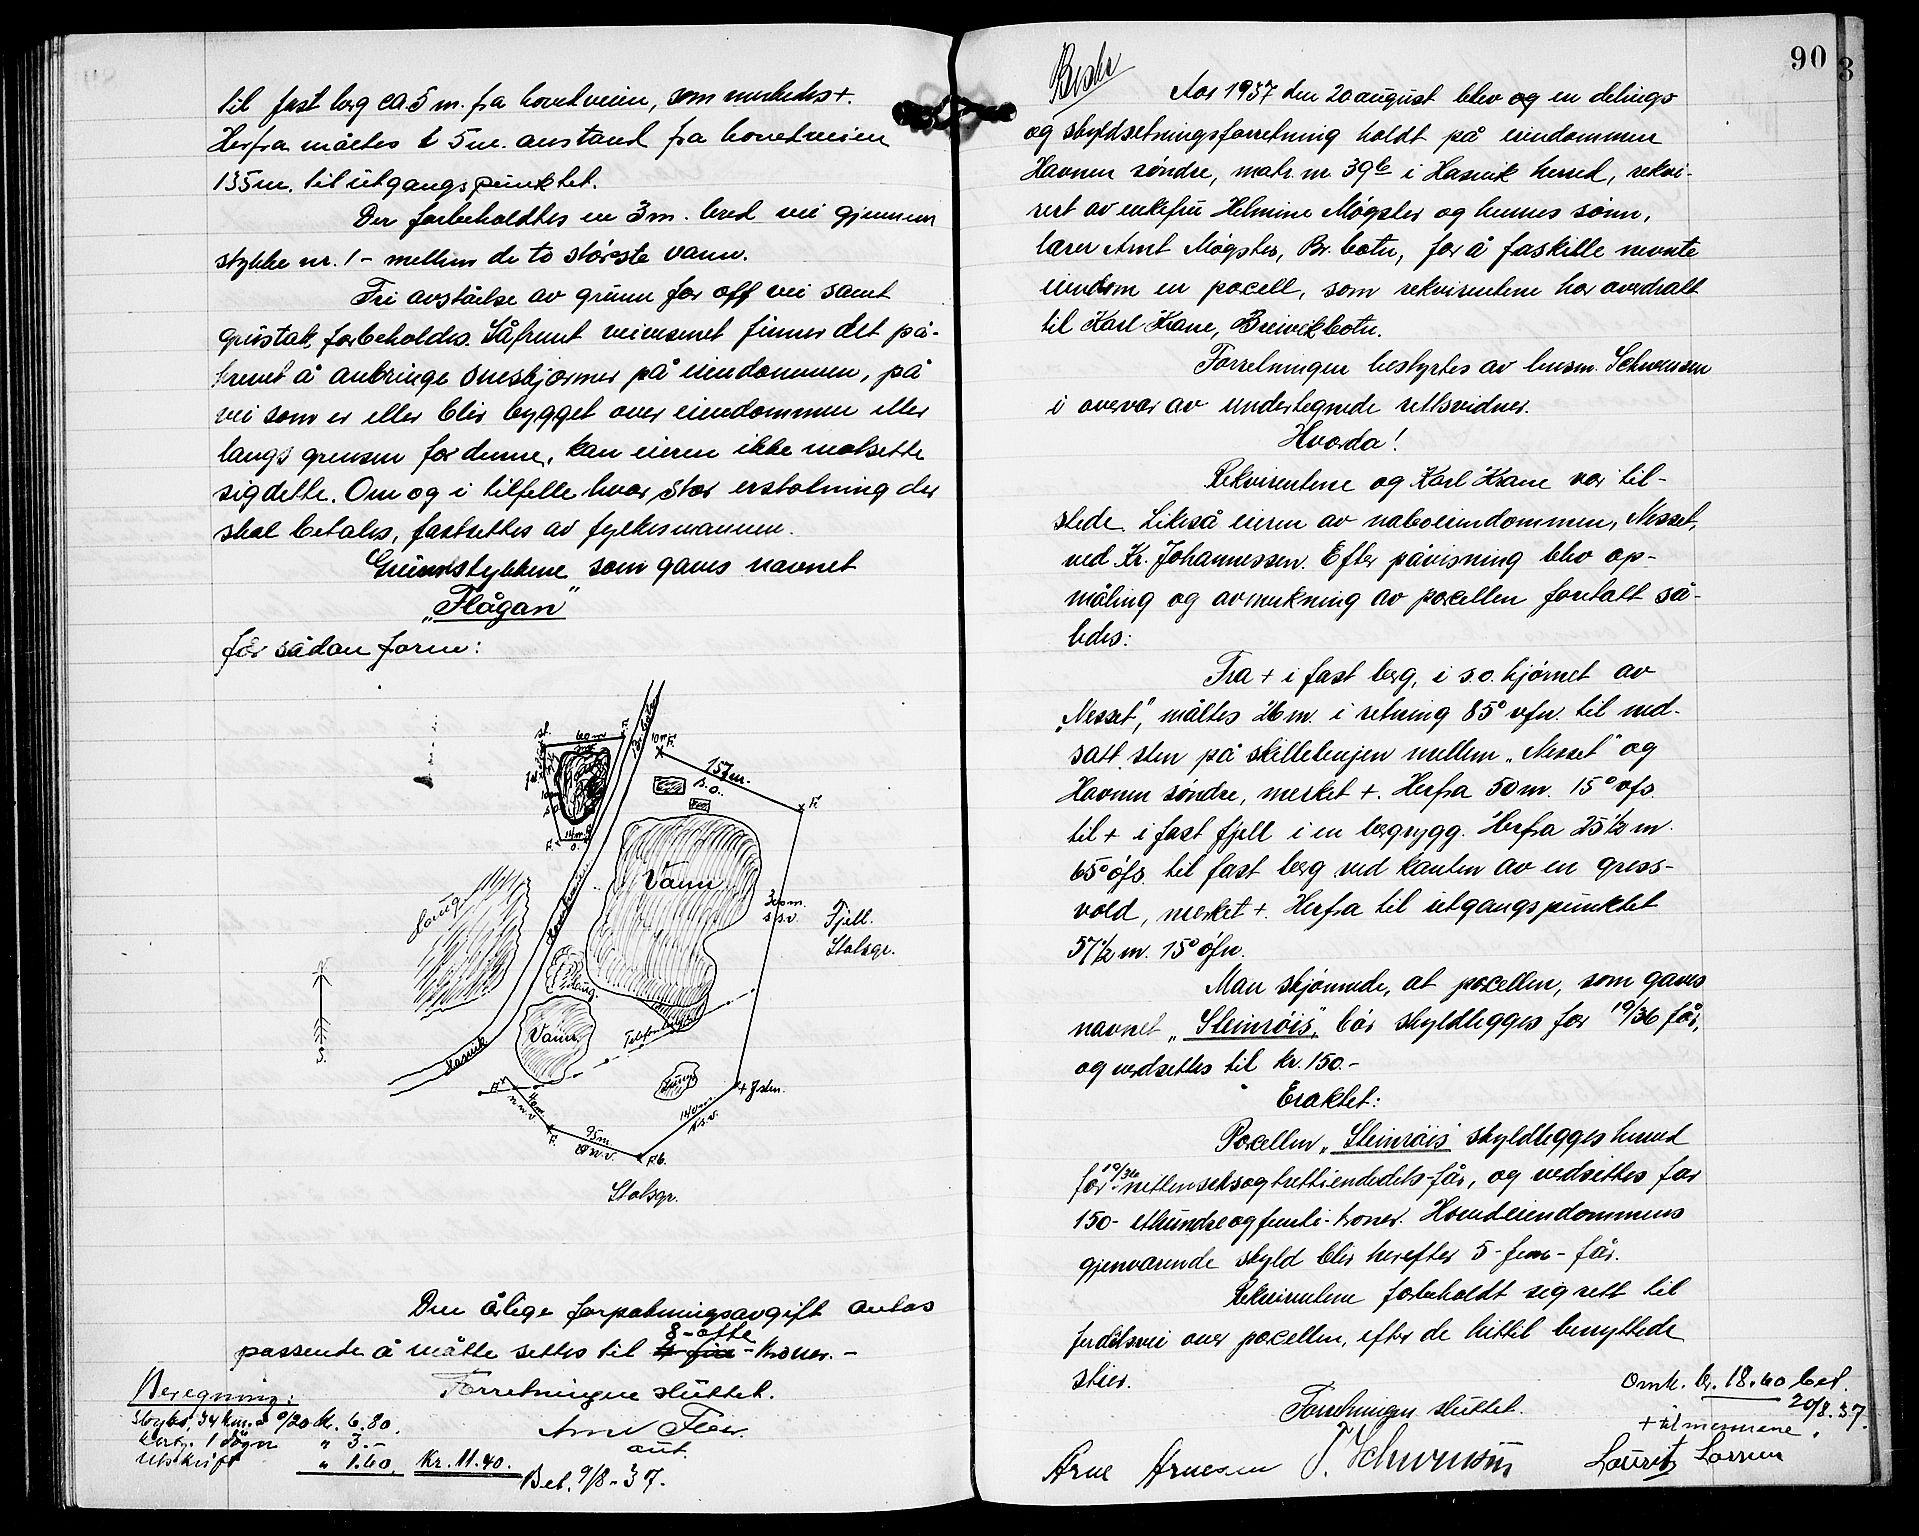 til fast berg ca 5 m. fra hovedveien, som merkedes +.
Herfra måltes 5 m. avstand fra hovedveien
135 m. til utgangspunktet.
Der forbeholdtes en 3 m. bred vei gjennem
stykke nr. 1 - mellem de to største vann.
Fri avståelse av grunn for off vei samt
grustak forbeholdes. Såfremt veivesenet finner det på-
krevet å anbringe sneskjermer på eiendommen, på
vei som er eller blir bygget over eiendommen eller
langs grensen for denne, kan eieren ikke motsette
sig dette. Om og i tilfelle hvor stor erstatning der
skal betales, fastsettes av fylkesmannen.
Grunnstykkene som gaves navnet
"Flågan"
får sådan form:
60 m
F.
10 m F.
157 m.
s.o.
F.
14 m.
F.
o.
Vann
300 m.
s.s.v.
Fjell.
Statsgr.
Haug
Haug.
Vann
Hasvik
S.
Haug
+ J. sten.
n.n.v.
F.
95 m.
140 m.
F.b.
Statsgr.
Den årlige forpaktningsavgift antas
8 - åtte
passende å måtte settes til - kroner. -
Forretningen sluttet.
Beregning:
Skyss, 34 km. à 0/20 kr. 6.80.
1 døgn " 3.-
Utskrift " 1.60, kr. 11.40.
aut.
Bet. 9/8-37.
90
Beskr
Aar 1937 den 20 august blev og en delings
og skyldsetningsforretning holdt på eiendommen
Havnen søndre, matr. nr. 39 b i Hasvik herred, rekvi-
rert av enkefru Helmine Møgster og hennes sønn,
lærer Arnt Møgster, Br. botn, for å fraskille nevnte
eiendom en parcell, som rekvirentene har overdratt
til Karl Krane, Breivikbotn.
Forretningen bestyrtes av lensm. Schwensen
i overvær av undertegnede rettsvidner.
Hvorda!
Rekvirentene og Karl Krane var til-
stede. Likeså eieren av naboeiendommen, Nesset,
ved Kr. Johannessen. Efter påvisning blev op-
måling og avmerkning av parcellen foretatt så-
ledes:
Fra + i fast berg, i s.o. hjørnet av
"Nesset", måltes 26 m. i retning 85° vfn. til ned-
satt sten på skillelinjen mellem "Nesset" og
Havnen søndre, merket +. Herfra 50 m. 15° vfs.
til + i fast fjell i en bergrygg. Herfra 25 1/2 m.
65° øfs. til fast berg ved kanten av en gress-
vold, merket +. Herfra til utgangspunktet
57 1/2 m. 15° øfn.
Man skjønnede, at parcellen, som gaves
navnet "Steinrøis", bør skyldlegges for 19/36 får,
og verdsettes til kr. 150.-
Eraktet:
Parcellen "Steinrøis" skyldlegges herved
for 19/36 - nittenseksogtrettiendedels - får, og verdsettes for
150 - etthundreogfemti - kroner. Hovedeiendommens
gjenværende skyld blir herefter 5 - fem - får.
Rekvirentene forbeholdt sig rett til
ferdselsvei over parcellen, efter de hittil benyttede
stier.
Forretningen sluttet.
Omk. kr. 18.60 bet.
20/8.37.
+ til mennene.
Arne Arnesen J. Schwensen Lauritz Larsen